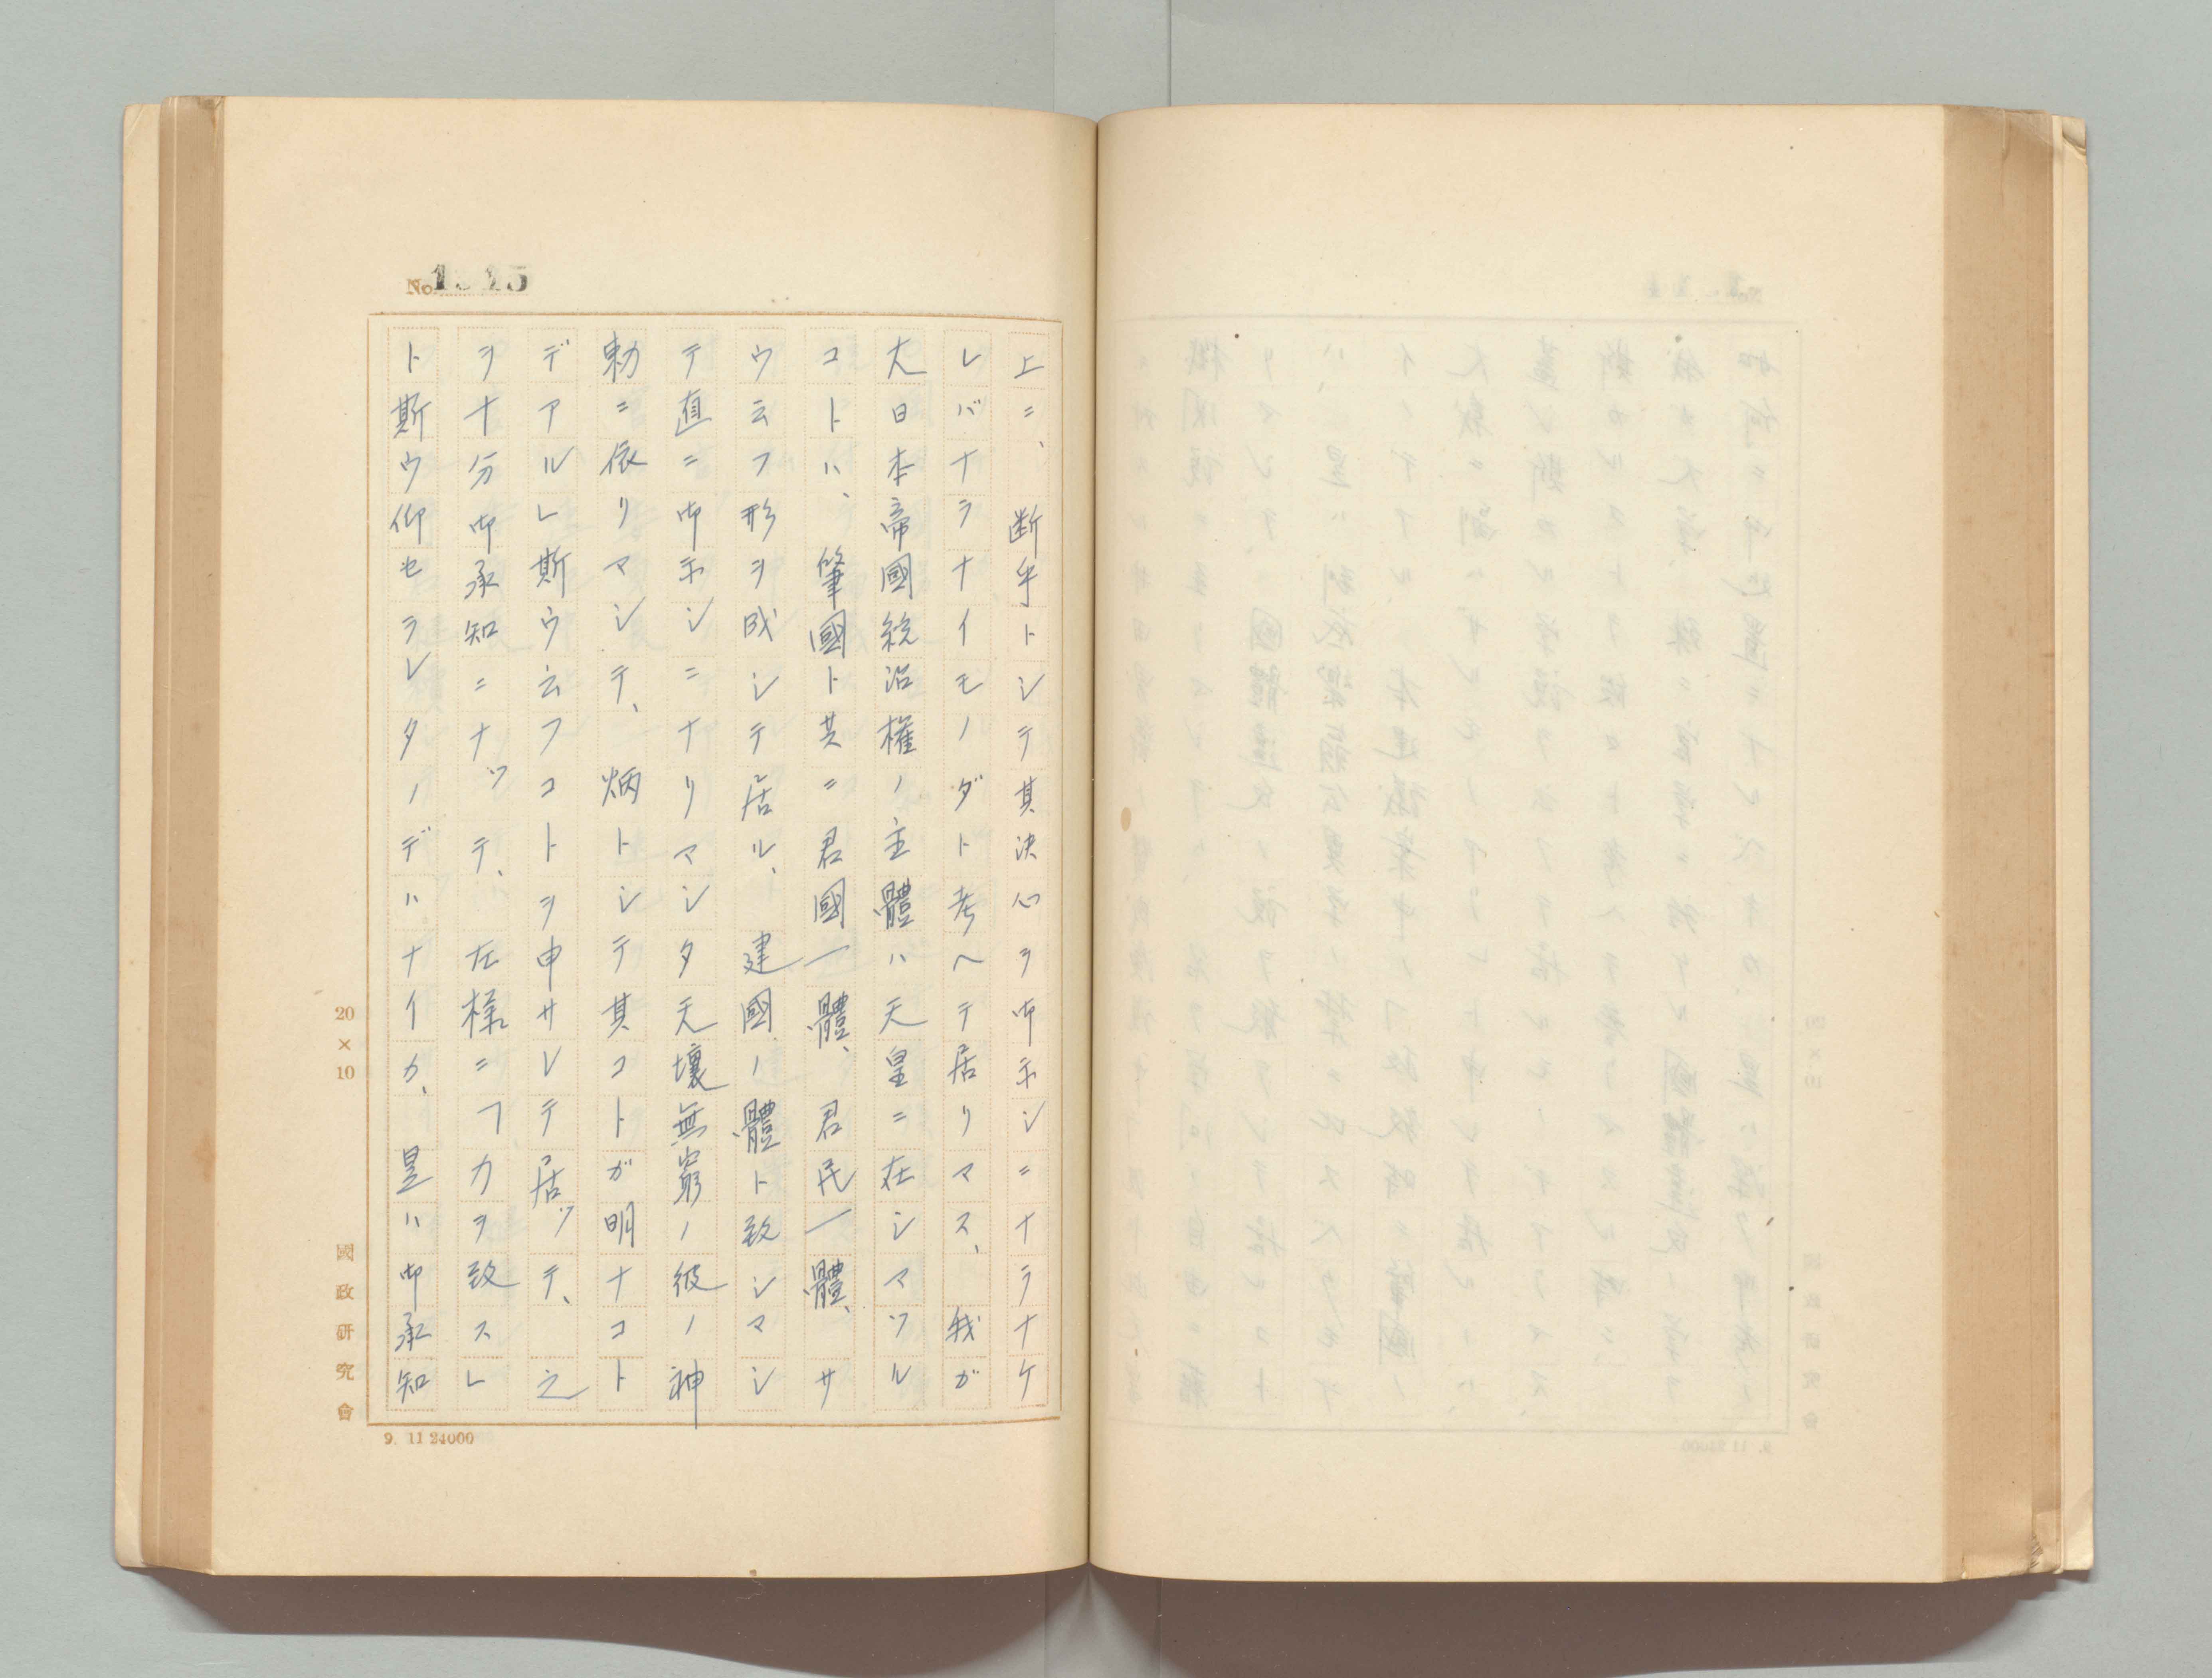 No. 1515
上ニ、斷乎トシテ其決心ヲ御示シニナラナケ
レバナラナイモノダト考ヘテ居リマス、我ガ
大日本帝國統治權ノ主體ハ天皇ニ在シマツル
コトハ、肇國ト共ニ君國一體、君民一體、サ
ウ云フ形ヲ成シテ居ル、建國ノ體ト致シマシ
テ直ニ御示シニナリマシタ天壤無窮ノ彼ノ神
勅ニ依リマシテ、炳トシテ其コトガ明ナコト
デアルレ斯ウ云フコトヲ申サレテ居ッテ、之
ヲ十分御承知ニナッテ、左様ニ一カヲ致スレ
ト斯ウ仰セラレタノデハナイカ、是ハ御承知
20×10
國政研究會
9. 11 24000